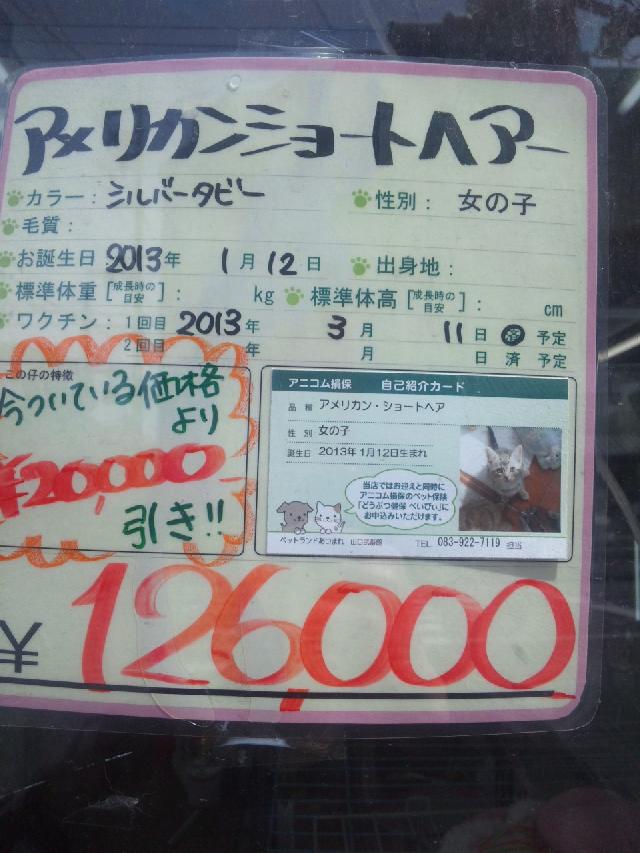 アメリカンショートヘアー
カラー: シルバータビー 性別: 女の子
毛質:
お誕生日 2013年 1月12日 出身地:
標準体重[成長時の目安]: kg 標準体高[成長時の目安]: cm
ワクチン: 1回目 2013年 3月 11日 済 予定
2回目 年 月 日 済 予定
この仔の特徴
今ついている価格
より
¥20,000
引き!!
アニコム損保 自己紹介カード
品種 アメリカン・ショートヘア
性別 女の子
誕生日 2013年1月12日生まれ
当店ではお迎えと同時に
アニコム損保のペット保険
「どうぶつ健保 べいびぃ」に
お申込みいただけます。
ペットランドあつまれ 山口 TEL 083-922-7119 担当
¥126,000